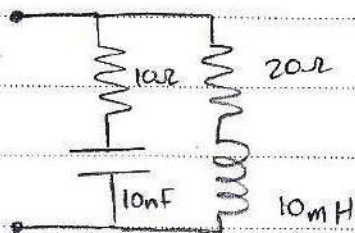 10Ω
20Ω
10nF
10mH